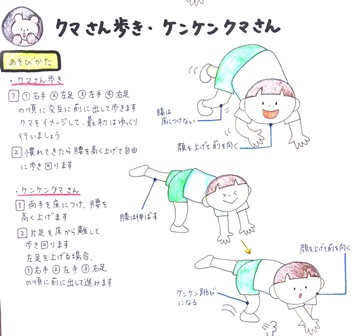 クマさん歩き・ケンケンクマさん
あそびかた
・クマさん歩き
1 ①右手 ②左足 ③左手 ④右足
の順に交互に前に出して歩きます
クマをイメージして、最初はゆっくり
行いましょう
2 慣れてきたら腰を高く上げて自由
に歩き回ります
・ケンケンクマさん
1 両手を床につけ、腰を
高く上げます
2 片足を床から離して
歩き回ります
左足を上げる場合、
①右手 ②左手 ③右足
の順に前に出して進みます
膝は
床につけない
顔を上げて前を向く
膝は伸ばす
顔を上げて前を向く
ケンケン跳びに
なる